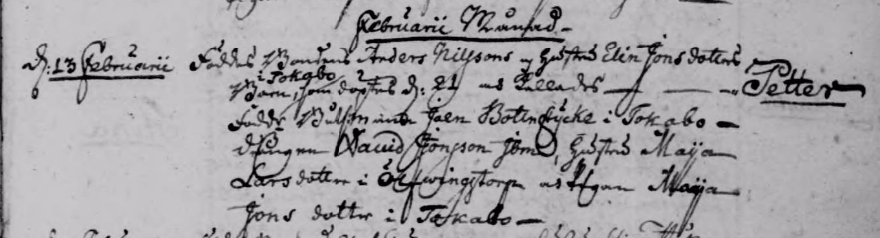 Februarii Månad
d: 13 Februarii Föddes Bondens Anders Nilssons og Hustrus Elin Jons dotters
i Tokabo
Barn, som döptes d: 21 och Kallades Petter
Fadd: Jaen i Tokabo
drängen David Jönson Hustru Maija
Lars dotter i och Pigan Maija
Jons dotter i Tokabo